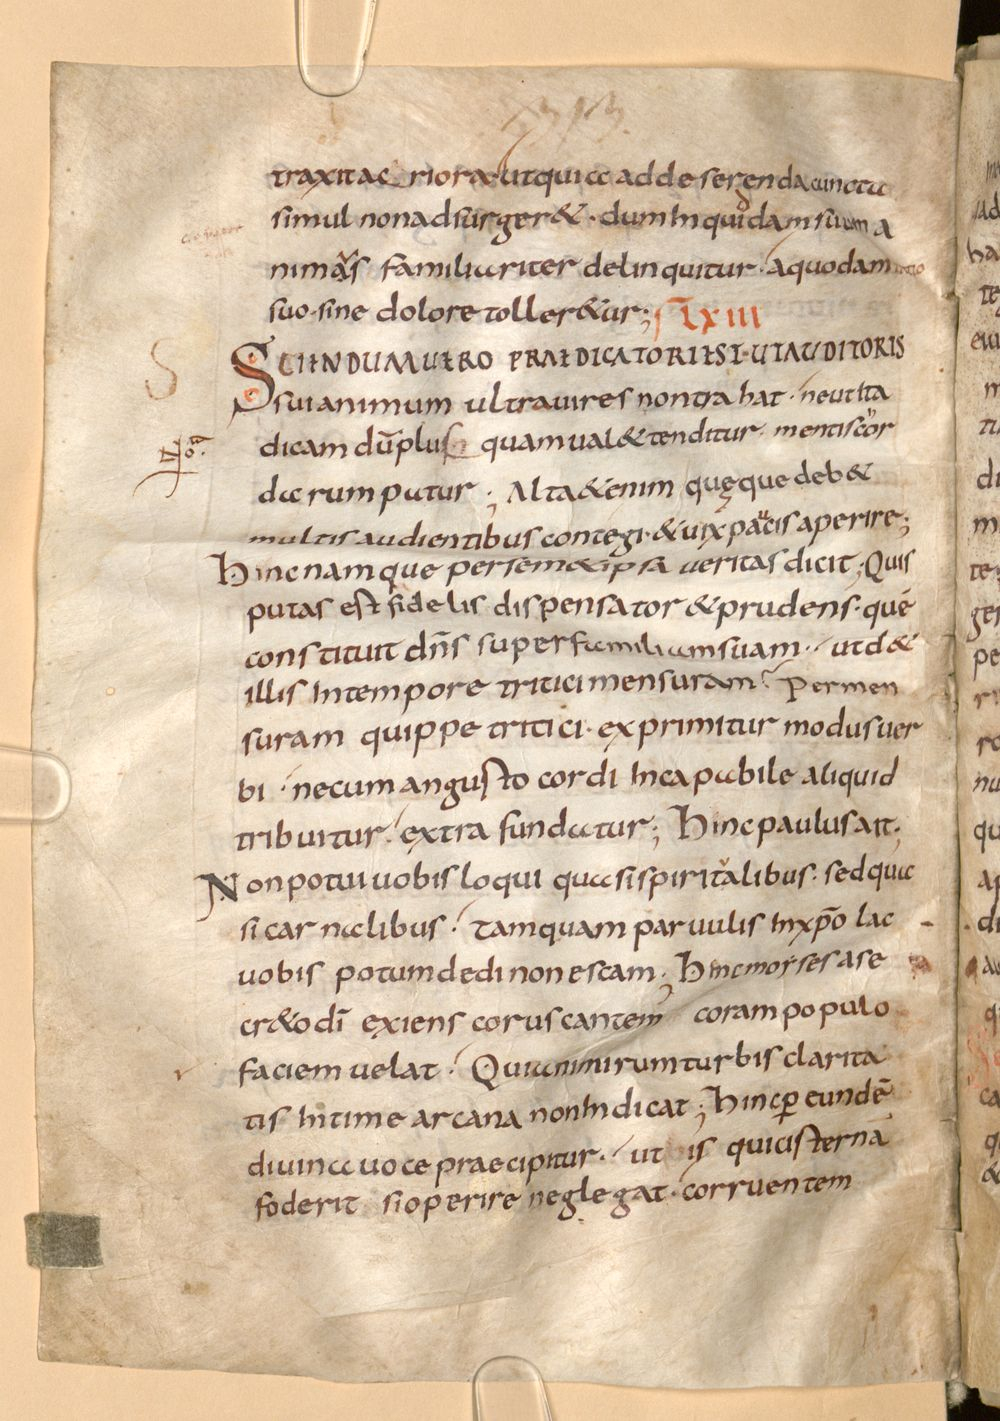 traxit ac riora ut qui cc ad deserenda cuncta
simul non adsurger& · dum in quodam suum a
nimas familiariter delinquitur · a quodam
suo · sine dolore toller&ur; LXIII
SCIENDUM UERO PRAEDICATORI EST · UT AUDITORIS
sui animum ultra uires non trahat · ne ut ita
dicam dū plus quam ual& tenditur · mentis cor
da rumpatur ; Alta &enim quęque deb&
multis audientibus contegi · & uix paucis aperire;
Hinc namque per sem&ipsa ueritas dicit ; Quis
putas est fidelis dispensator & prudens · quē
constituit dn̄s super familiam suam · ut d&
illis in tempore tritici mensuram ; Per men
suram quippe tritici · exprimitur modus uer
bi · ne cum angusto cordi incapabile aliquid
tribuitur · extra fundatur ; Hinc paulus ait ;
Non potui uobis loqui quasi spiritalibus · sed qua
si carnalibus · tamquam paruulis in xp̄o lac
uobis potum dedi non escam ; Hinc moyses a se
cr&o dī exiens coruscantem coram populo
faciem uelat · Quia nimirum turbis clarita
tis intime arcana non indicat ; Hinc ꝑ eundē
diuina uoce praecipitur · ut is qui cisterna
foderit si operire neglegat · corruentem